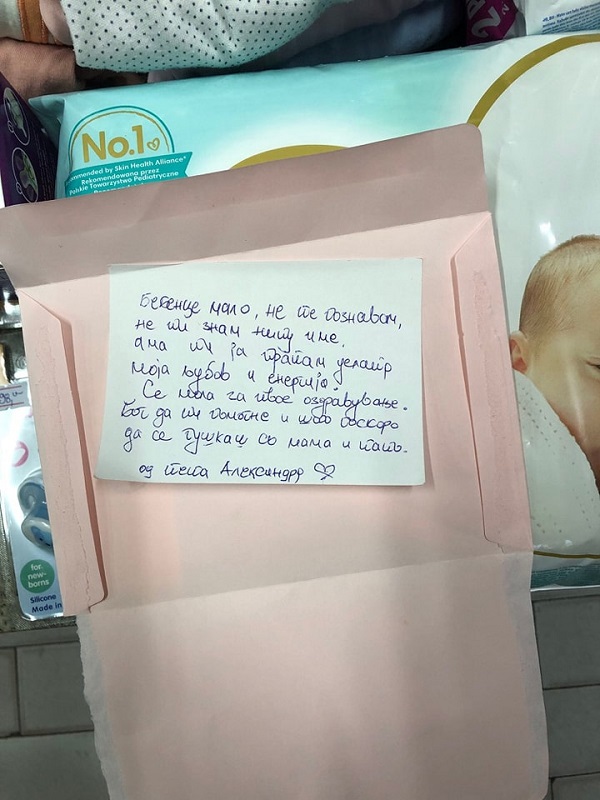 No.1
recommended by Skin Health Alliance*
Rekomendowana przez
Polskie Towarzystwo Pediatryczne
Бебенце мало, не те познавам,
не ти знам ниту име.
ама ти ја праќам целата
моја љубов и енергија.
Се молам за твое оздравување.
Бог да ти помогне и што поскоро
да се гушкаш со мама и тато.
од тета Александра
for
new-
borns
Silicone
Made in